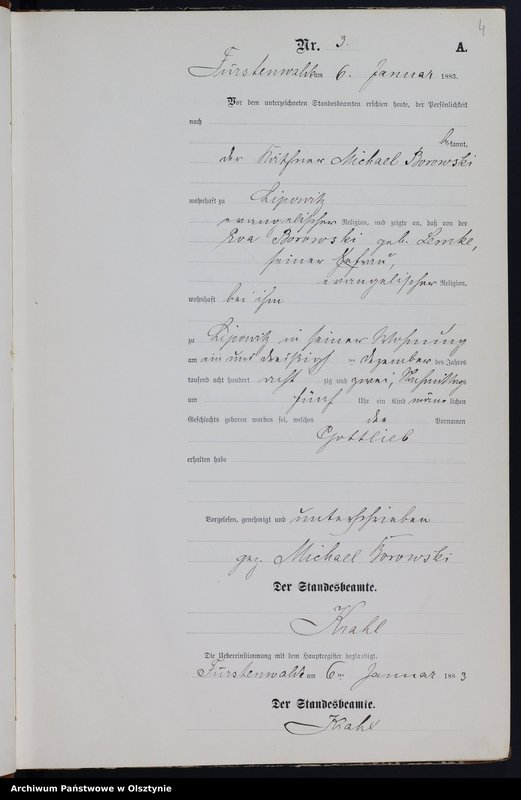 4
Nr. 3. A.
Fürstenwalde am 6. Januar 1883.
Vor dem unterzeichneten Standesbeamten erschien heute, der Persönlichkeit
nach
bekannt,
der Käthner Michael Borowski
wohnhaft zu Lipowitz
evangelischer Religion, und zeigte an, daß von der
Eva Borowski geb. Lemke,
seiner Ehefrau,
evangelischer Religion,
wohnhaft bei ihm
zu Lipowitz in seiner Wohnung
am ein und dreißigsten Dezember des Jahres
tausend acht hundert acht zig und zwei, Nachmittags
um fünf Uhr ein Kind männ lichen
Geschlechts geboren worden sei, welches den Vornamen
Gottlieb
erhalten habe
Vorgelesen, genehmigt und unterschrieben
gez. Michael Borowski
Der Standesbeamte.
Krahl
Die Uebereinstimmung mit dem Hauptregister beglaubigt.
Fürstenwalde am 6ten Januar 1883
Der Standesbeamte.
Krahl
Archiwum Państwowe w Olsztynie